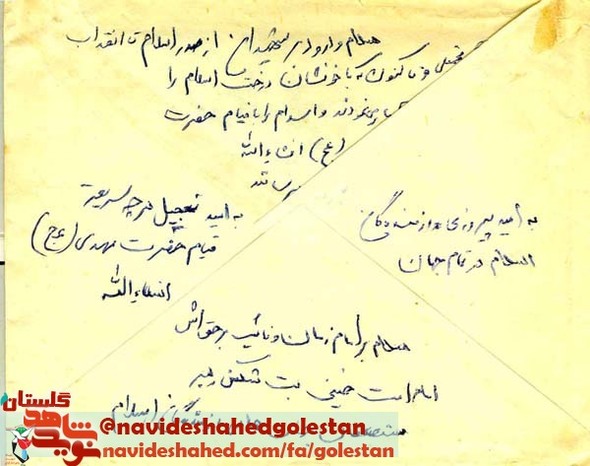 سلام و درود بر شهیدان از صدر اسلام تا انقلاب
تحمیلی و تاکنون که با خونشان درخت اسلام را
نمودند و اسلام را با قیام حضرت
(عج) انشاءالله
به امید پیروزی رزمندگان
اسلام در تمام جهان
به امید تعجیل هر چه سریعتر
قیام حضرت مهدی (عج)
انشاءالله
سلام بر امام زمان و نائب بر حقش
امام امت خمینی بت شکن رهبر
اسلام
گلستان
نوید شاهد
@navideshahedgolestan
navideshahed.com/fa/golestan